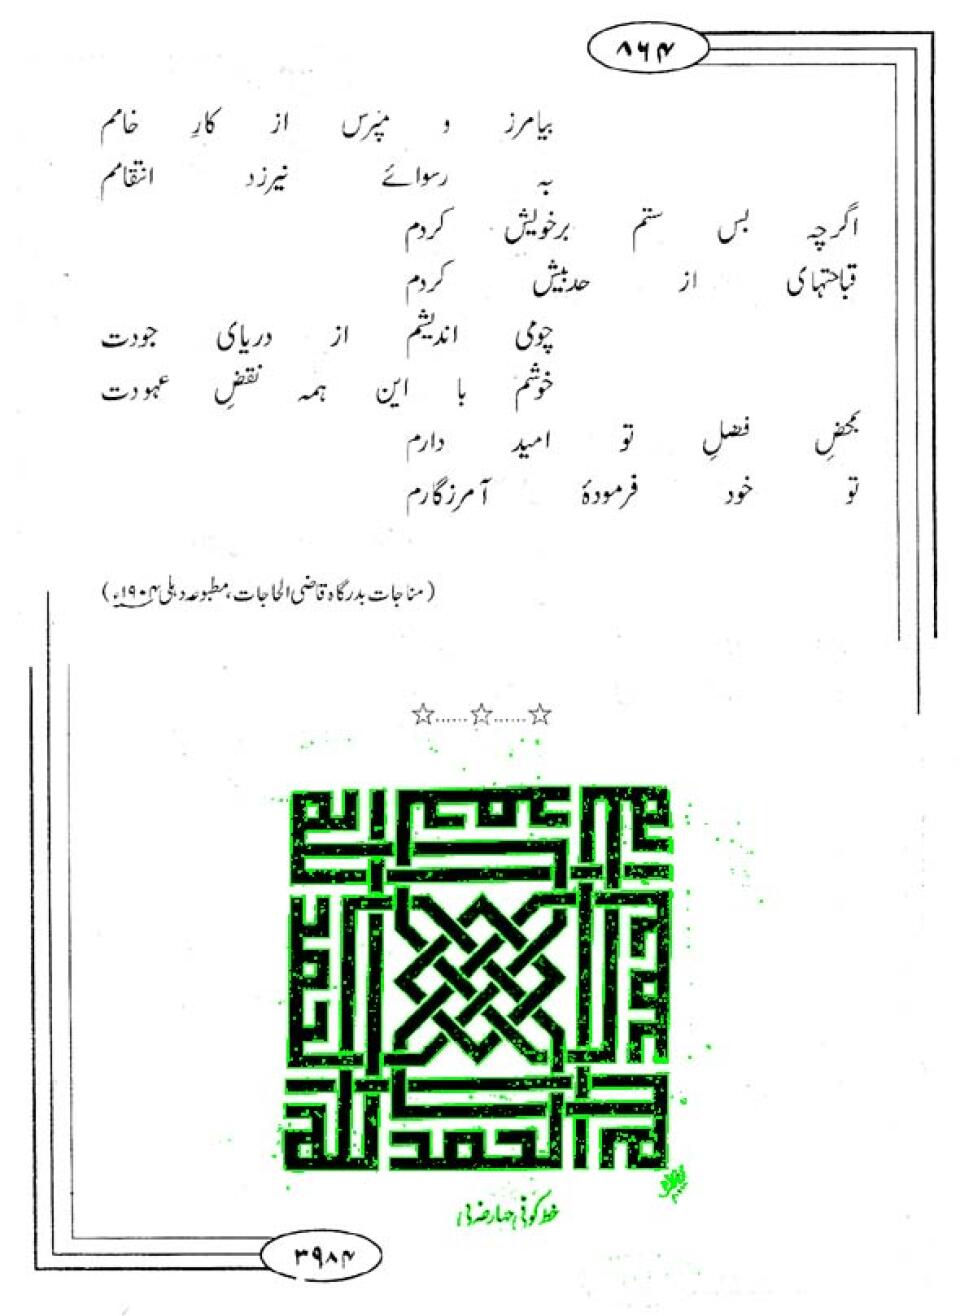 ۸۶۴
بیامرز و مپرس از کارِ خامم
بہ رسوائے نیرزد انتقامم
اگرچہ بس ستم برخویش کردم
قباحتهای از حدبیش کردم
چومی اندیشم از دریای جودت
خوشم با این ہمہ نقضِ عہودت
بمحضِ فضلِ تو امید دارم
تو خود فرمودۂ آمرزگارم
(مناجات بدرگاہ قاضی الحاجات، مطبوعہ دہلی ۱۹۰۴ء)
الحمد للہ
خط کوفی چهار ضربی
۳۹۸۴